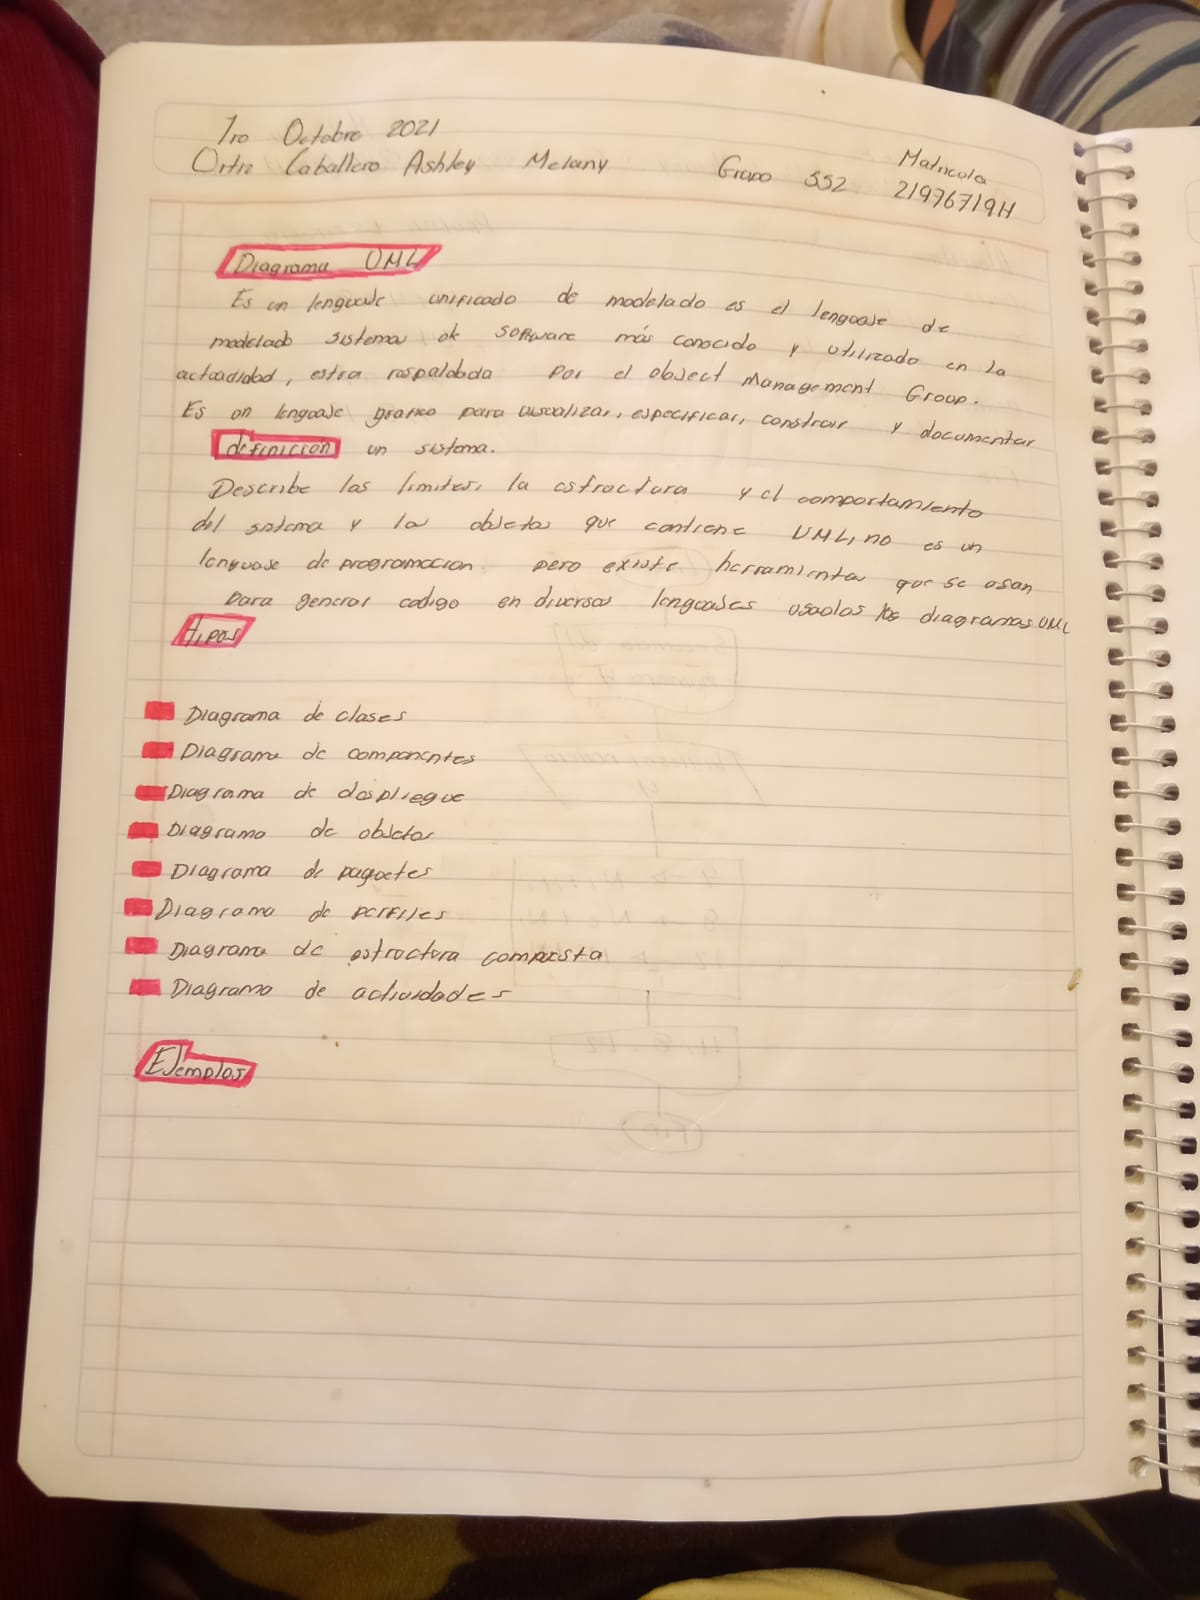 1ro Octobre 2021
Ortiz Caballero Ashley Melany Grupo 552 Matricula 21976719H
Diagrama UML
Es un lenguaje unificado de modelado es el lenguaje de
modelado sistemas de software más conocido y utilizado en la
actualidad, estra respaldada por el object Management Group.
Es un lenguaje grafico para visualizar, especificar, construir y documentar
definición un sistema.
Describe los limites, la estructura y el comportamiento
del sistema y los objetos que contiene UML, no es un
lenguaje de programacion pero existe herramientas que se usan
para generar codigo en diversos lenguajes los diagramas UML
tipos
Diagrama de clases
Diagrama de componentes
Diagrama de despliegue
Diagrama de objetos
Diagrama de paquetes
Diagrama de perfiles
Diagrama de estructura compuesta
Diagrama de actividades
Ejemplos